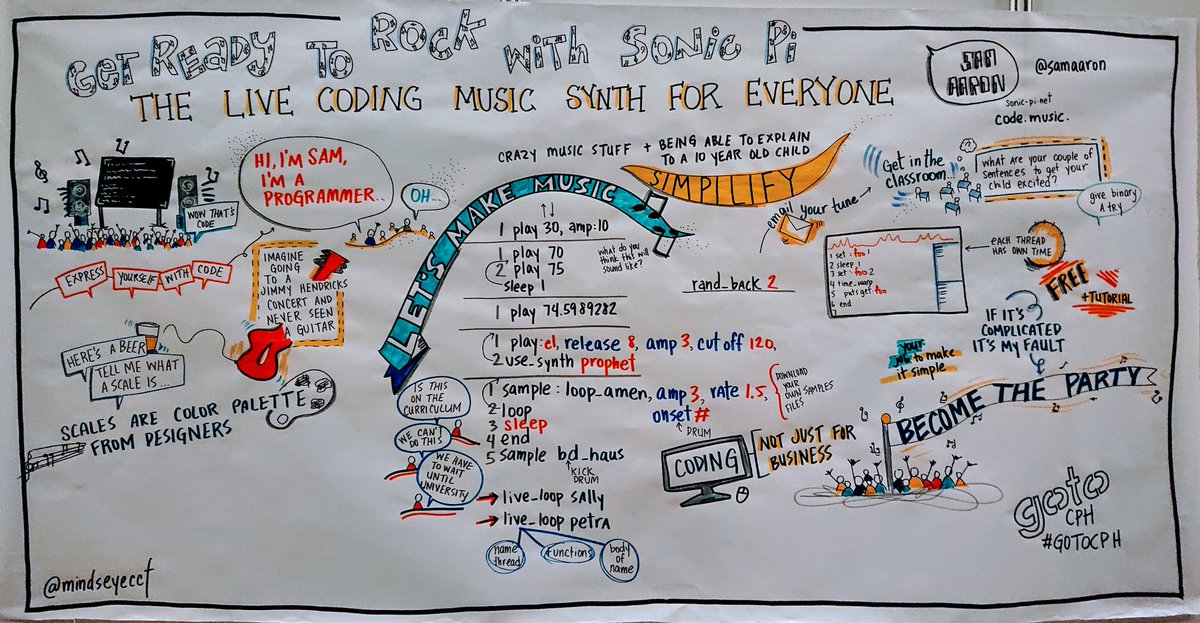 GET READY TO ROCK WITH SONIC PI
THE LIVE CODING MUSIC SYNTH FOR EVERYONE
SAM
AARON
@samaaron
sonic-pi.net
code.music.
WOW THAT'S
CODE
HI, I'M SAM,
I'M A
PROGRAMMER..
OH...
EXPRESS YOURSELF WITH CODE
IMAGINE
GOING
TO A
JIMMY HENDRICKS
CONCERT AND
NEVER SEEN
A GUITAR
HERE'S A BEER
TELL ME WHAT
A SCALE IS...
SCALES ARE COLOR PALETTE
FROM DESIGNERS
@mindseyeccf
CRAZY MUSIC STUFF + BEING ABLE TO EXPLAIN
TO A 10 YEAR OLD CHILD
SIMPLIFY
LET'S MAKE MUSIC
1 play 30, amp:10
1 play 70
2 play 75
sleep 1
what do you
think that will
sound like?
1 play 74.5989282
1 play:e1, release 8, amp 3, cut off 120,
2 use_synth prophet
1 sample: loop_amen, amp 3, rate 1.5,
onset #
DRUM
2 loop
3 sleep
4 end
5 sample bd_haus
KICK
DRUM
DOWNLOAD
YOUR
OWN SAMPLES
FILES
IS THIS
ON THE
CURRICULUM
WE CAN'T
DO THIS
WE HAVE
TO WAIT
UNTIL
UNIVERSITY
live_loop SAlly
live_loop petrA
name
thread
functions
body
of
name
rand_back 2
email your tune
Get in the
classroom...
What are your couple of
Sentences to get your
child excited?
give binary
A try
1 set :foo 1
2 sleep 1
3 set :foo 2
4 time_warp
5 puts get:foo
6 end
EACH THREAD
HAS OWN TIME
FREE
+TUTORIAL
IF IT'S
COMPLICATED
IT'S MY FAULT
your
job to make
it simple
BECOME THE PARTY
CODING
NOT JUST FOR
BUSINESS
goto
CPH
#GOTOCPH